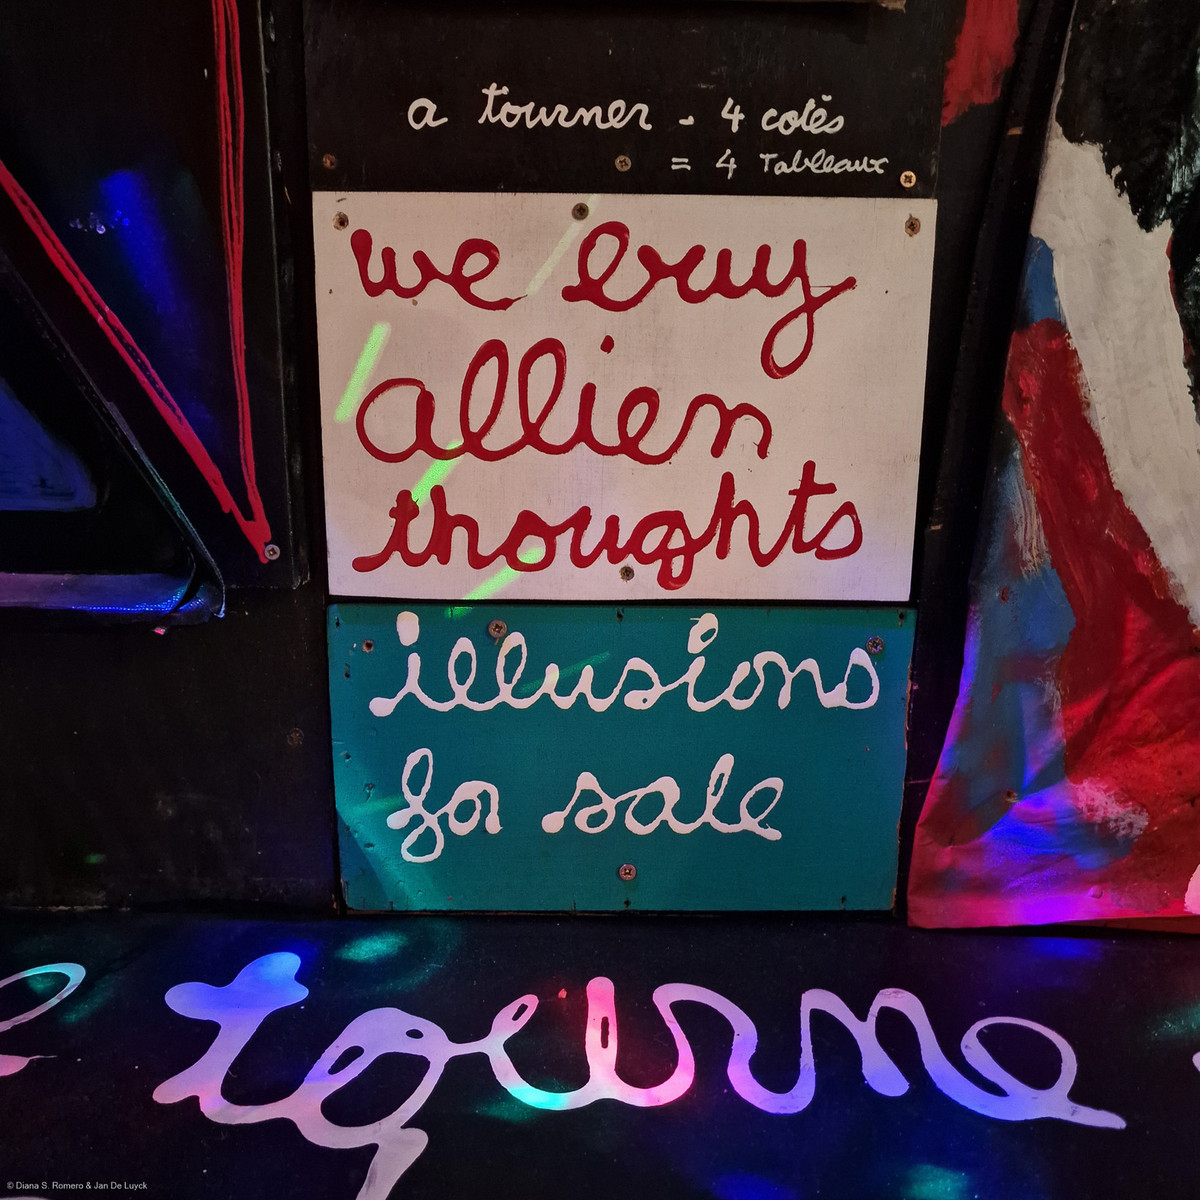 a tourner - 4 cotés
= 4 Tableaux
we buy
allien
thoughts
illusions
for sale
tourne
© Diana S. Romero & Jan De Luyck